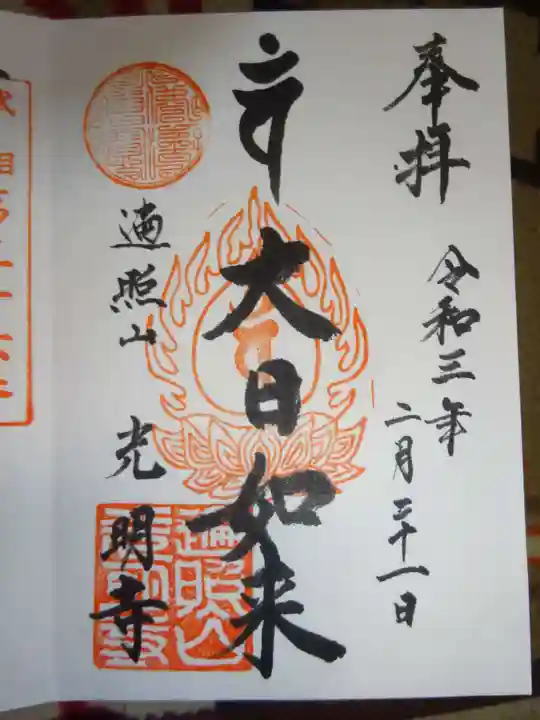 奉拝
令和三年
二月二十一日
大日如来
遍照山 光明寺
遍照山
光明寺